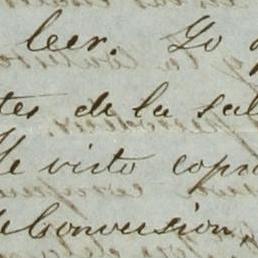 leer. Yo
tes de la sal
He visto copia
de Conversion,